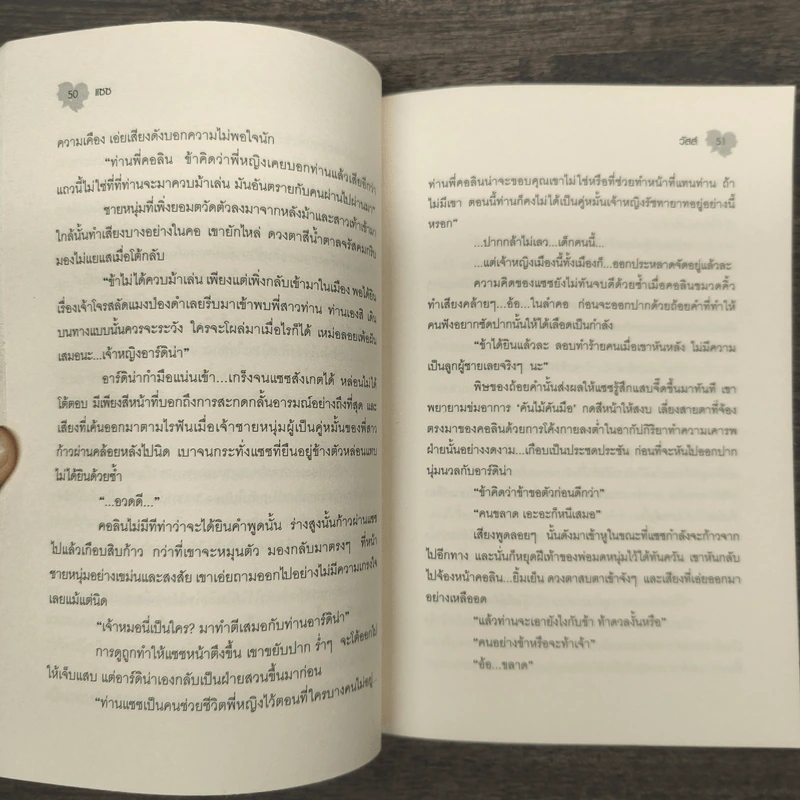 50 แซช
ความเคือง เอ่ยเสียงดังบอกความไม่พอใจนัก
"ท่านพี่คอลิน ข้าคิดว่าพี่หญิงเคยบอกท่านแล้วเสียอีกว่า
แถวนี้ไม่ใช่ที่ที่ท่านจะมาควบม้าเล่น มันอันตรายกับคนผ่านไปผ่านมา"
ชายหนุ่มที่เพิ่งยอมตวัดตัวลงมาจากหลังม้าและสาวเท้าเข้ามา
ใกล้นั้นทำเสียงบางอย่างในคอ เขายักไหล่ ดวงตาสีน้ำตาลจรัสคมกริบ
มองไม่แยแสเมื่อโต้กลับ
"ข้าไม่ได้ควบม้าเล่น เพียงแต่เพิ่งกลับเข้ามาในเมือง พอได้ยิน
เรื่องเจ้าโจรสลัดแมงป่องดำเลยรีบมาเข้าพบพี่สาวท่าน ท่านเองสิ เดิน
บนทางแบบนั้นควรจะระวัง ใครจะโผล่มาเมื่อไรก็ได้ เหม่อลอยเพ้อฝัน
เสมอนะ...เจ้าหญิงอาร์ดิน่า"
อาร์ดิน่ากำมือแน่นเข้า...เกร็งจนแซชสังเกตได้ หล่อนไม่ได้
โต้ตอบ มีเพียงสีหน้าที่บอกถึงการสะกดกลั้นอารมณ์อย่างถึงที่สุด และ
เสียงที่เค้นออกมาตามไรฟันเมื่อเจ้าชายหนุ่มผู้เป็นคู่หมั้นของพี่สาว
ก้าวผ่านคล้อยหลังไปนิด เบาจนกระทั่งแซชที่ยืนอยู่ข้างตัวหล่อนแทบ
ไม่ได้ยินด้วยซ้ำ
"...อวดดี..."
คอลินไม่มีทีท่าว่าจะได้ยินคำพูดนั้น ร่างสูงนั้นก้าวผ่านแซช
ไปแล้วเกือบสิบก้าว กว่าที่เขาจะหมุนตัว มองกลับมาตรงๆ ที่หน้า
ชายหนุ่มอย่างเขม่นและสงสัย เขาเอ่ยถามออกไปอย่างไม่มีความเกรงใจ
เลยแม้แต่นิด
"เจ้าหมอนี่เป็นใคร? มาทำตีเสมอกับท่านอาร์ดิน่า"
การดูถูกทำให้แซชหน้าตึงขึ้น เขาขยับปาก ร่ำๆ จะโต้ออกไป
ให้เจ็บแสบ แต่อาร์ดิน่าเองกลับเป็นฝ่ายสวนขึ้นมาก่อน
"ท่านแซชเป็นคนช่วยชีวิตพี่หญิงไว้ตอนที่ใครบางคนไม่อยู่...
วัสส์ 51
ท่านพี่คอลินน่าจะขอบคุณเขาไม่ใช่หรือที่ช่วยทำหน้าที่แทนท่าน ถ้า
ไม่มีเขา ตอนนี้ท่านก็คงไม่ได้เป็นคู่หมั้นเจ้าหญิงรัชทายาทอยู่อย่างนี้
หรอก"
...ปากกล้าไม่เลว...เด็กคนนี้...
...แต่เจ้าหญิงเมืองนี้ทั้งเมืองก็...ออกประหลาดจัดอยู่แล้วละ
ความคิดของแซชยังไม่ทันจบดีด้วยซ้ำเมื่อคอลินขมวดคิ้ว
ทำเสียงคล้ายๆ...อ้อ...ในลำคอ ก่อนจะออกปากด้วยถ้อยคำที่ทำให้
คนฟังอยากซัดปากนั้นให้ได้เลือดเป็นกำลัง
"ข้าได้ยินแล้วละ ลอบทำร้ายคนเมื่อเขาหันหลัง ไม่มีความ
เป็นลูกผู้ชายเลยจริงๆ นะ"
พิษของถ้อยคำนั้นส่งผลให้แซชรู้สึกแสบจี๊ดขึ้นมาทันที เขา
พยายามข่มอาการ 'คันไม้คันมือ' กดสีหน้าให้สงบ เลี่ยงสายตาที่จ้อง
ตรงมาของคอลินด้วยการโค้งกายลงต่ำในอากัปกิริยาทำความเคารพ
ฝ่ายนั้นอย่างงดงาม...เกือบเป็นประชดประชัน ก่อนที่จะหันไปออกปาก
นุ่มนวลกับอาร์ดิน่า
"ข้าคิดว่าข้าขอตัวก่อนดีกว่า"
"คนขลาด เอะอะก็หนีเสมอ"
เสียงพูดลอยๆ นั้นดังมาเข้าหูในขณะที่แซชกำลังจะก้าวจาก
ไปอีกทาง และนั่นก็หยุดฝีเท้าของพ่อมดหนุ่มไว้ได้ทันควัน เขาหันกลับ
ไปจ้องหน้าคอลิน...ยิ้มเย็น ดวงตาสบตาเข้าจังๆ และเสียงที่เอ่ยออกมา
อย่างเหลืออด
"แล้วท่านจะเอายังไงกับข้า ท้าดวลงั้นหรือ"
"คนอย่างข้าหรือจะท้าเจ้า"
"อ้อ...ขลาด"